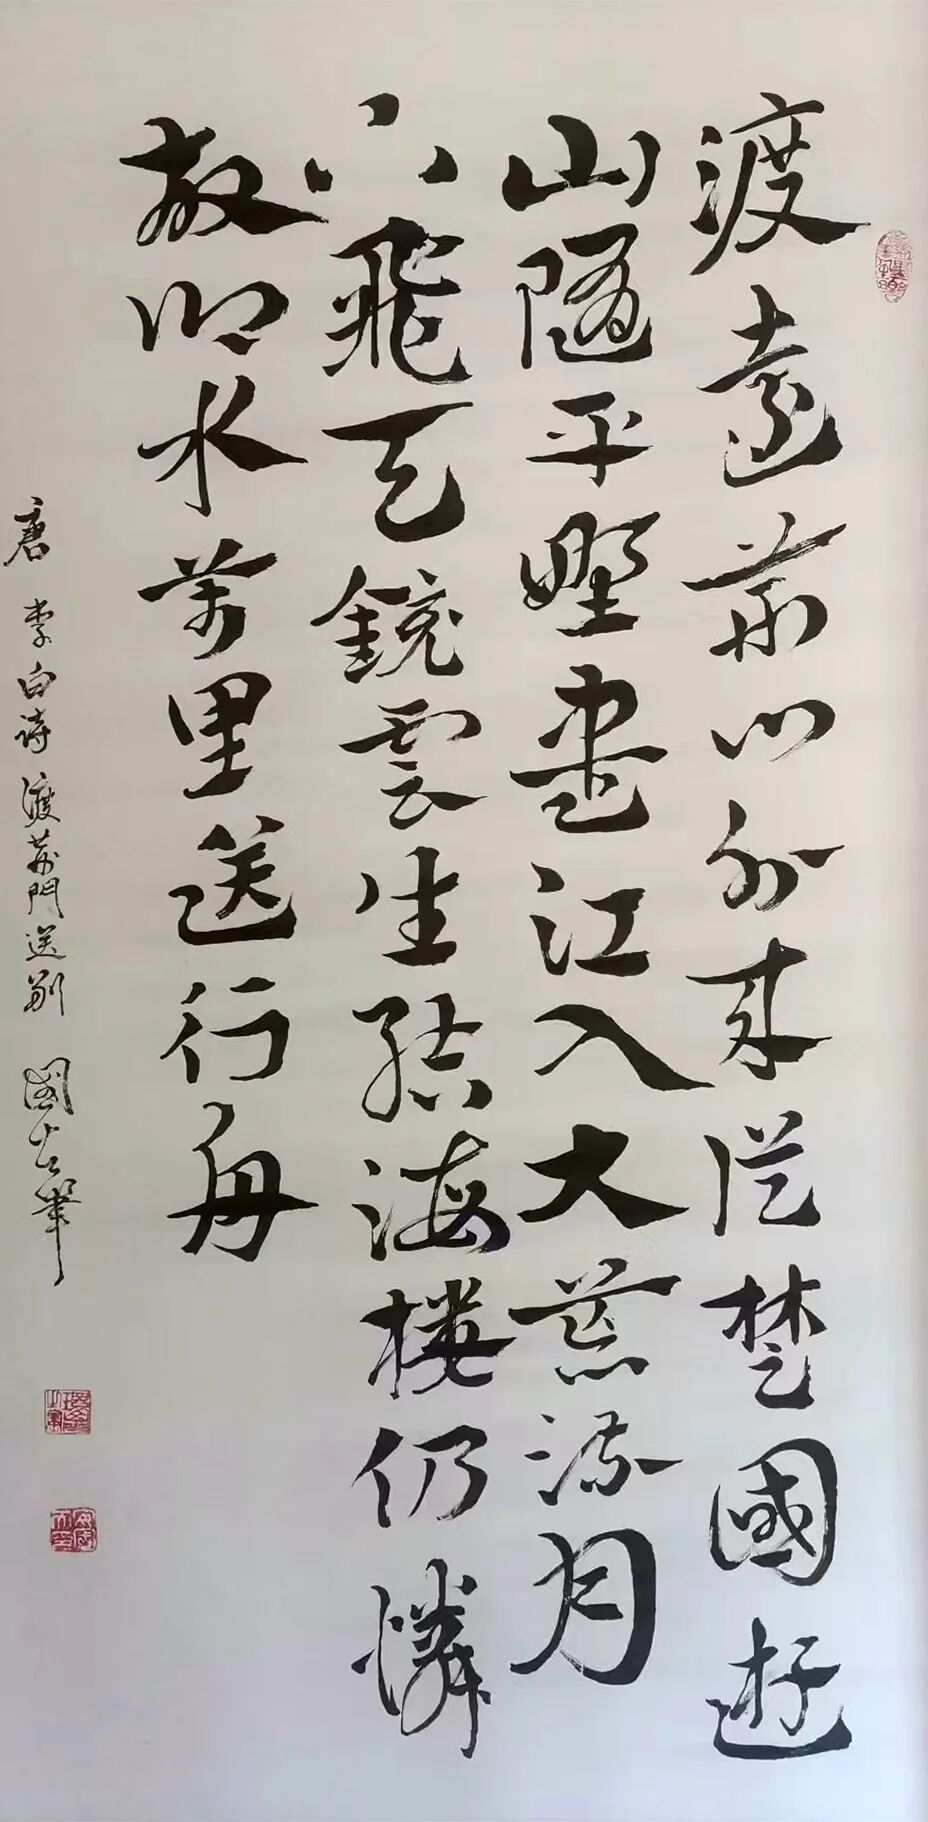 渡遠荊门外来従楚國遊
山随平野盡江入大荒流月
下飛天鏡雲生結海楼仍憐
故鄉水万里送行舟
唐 李白诗渡荊門送别 國 筆